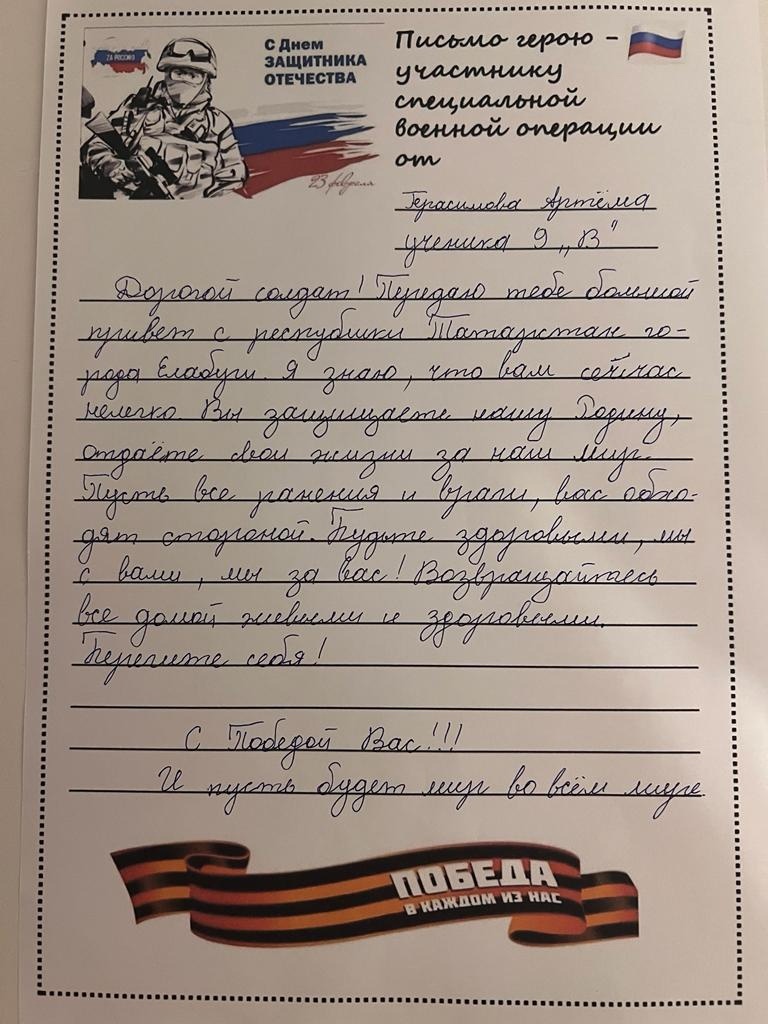 ZA РОССИЮ
С Днем
ЗАЩИТНИКА
ОТЕЧЕСТВА
23 февраля
Письмо герою -
участнику
специальной
военной операции
от
Герасимова Артёма
ученика 9 „В"
Дорогой солдат! Передаю тебе большой
привет с республики Татарстан го-
рода Елабуги. Я знаю, что вам сейчас
нелегко. Вы защищаете нашу Родину,
отдаёте свои жизни за наш мир.
Пусть все ранения и враги, вас обхо-
дят стороной. Будьте здоровыми, мы
с вами, мы за вас! Возвращайтесь
все домой живыми и здоровыми.
Берегите себя!
С Победой Вас!!!
И пусть будет мир во всём мире.
ПОБЕДА
В КАЖДОМ ИЗ НАС